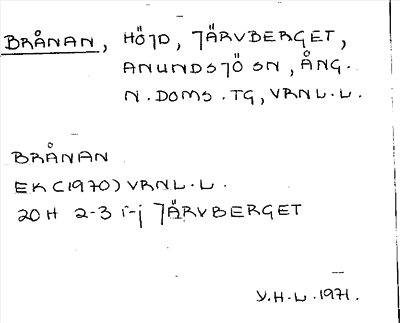 BRÅNAN, HÖJD, JÄRVBERGET,
ANUNDSJÖ SN, ÅNG.
N. DOMS. TG, VRNL. L.
BRÅNAN
EK (1970) VRNL. L.
20H 2-3 i-j JÄRVBERGET
Y.H.L. 1971.